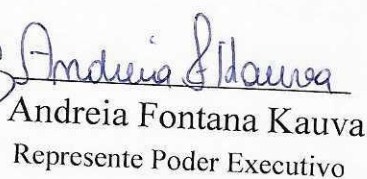 Andreia F Kauva
Andreia Fontana Kauva
Represente Poder Executivo